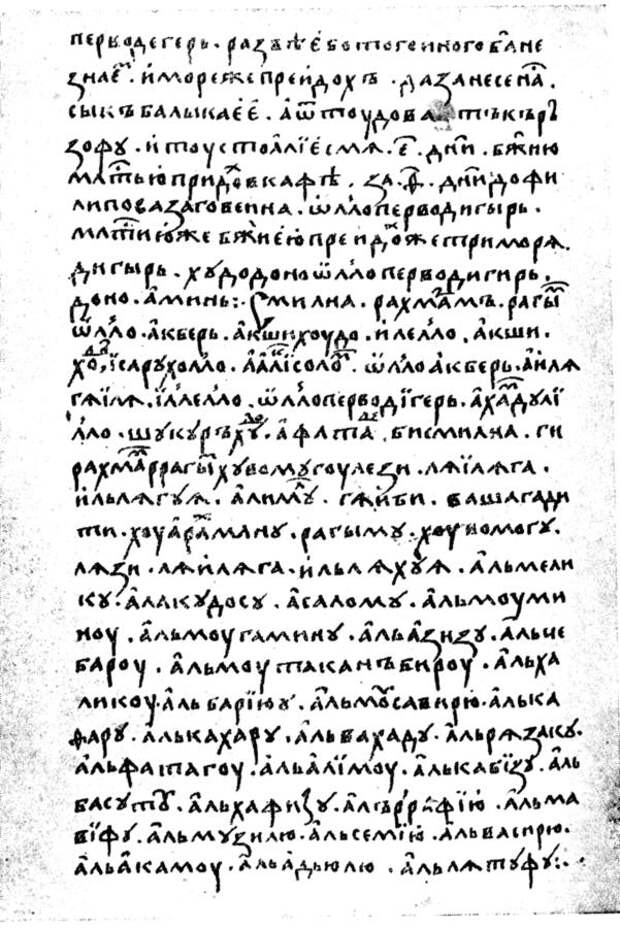 перьводегерь. развѣе бо того иного б҃га не
знаеⷨ. и море же преидохъ. да занесе нⷵа.
сыкъ балыкаее. а ѿтоудова тъкъръ
зофу. и тоу стоꙗли есмꙗ. е҃. дн҃и. бж҃иею
млⷭ҇тью придоⷯ в кафѣ. за. ѳ҃. дн҃и до фи
липова заговеина. ѡлло перводигырь.
млⷭ҇тию же бж҃иею преидоⷯ же три морꙗ.
дигырь. худо доно ѡлло перводигирь.
доно. аминь:. смилна. рахмаⷨмъ. рагыⷨ
ѡлло. акберь. акши хоудо. илелло. акши.
хоⷣ. їса рухолло. ааликⷭ҇солоⷨ. ѡлло акберь. аилꙗ
гꙗїлꙗ. їллелло. ѡлло перводїгерь. ахаⷨду лїꙶ
лло. шукуръ хуⷣ. афатаⷣ. бисмилна. ги
рахмаⷨ ррагыⷨ хувомугоу лези. лꙗїлꙗга.
ильлꙗгуꙗ. алимуⷧ. гꙗиби. вашагади
ти. хоуарахⷨману. рагыму. хоувомогу.
лꙗзи. лꙗилꙗга. ильлꙗхуꙗ. альмели
ку. алакудосу. асалому. альмоуми
ноу. альмоугамину. альазизу. альче
бароу. альмоутаканъбироу. альха
ликоу. альбарїюу. альмоусавирю. алька
фару. алькахару. альвахаду. альрꙗзаку.
альфатагоу. альалїмоу. алькабїзу. аль
басуту. альхафизу. алъррафїю. альма
вїфу. альмузилю. альсемїю. альвасирю.
альакамоу. альадьюлю. альлꙗтуфу:.